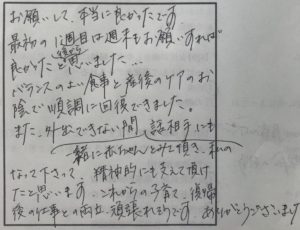 お願いして、本当に良かったです。
最初の1週目は週末もお願いすれば
良かったと思いました…
バランスのよい食事と産後のケアのお
陰で順調に回復できました。
また、外出できない間、話相手にも
一緒に赤ちゃんをみて頂き、私の
なって下さって、精神的にも支えて頂け
たと思います。これからの子育て、復帰
後の仕事との両立、頑張れそうです。ありがとうございました